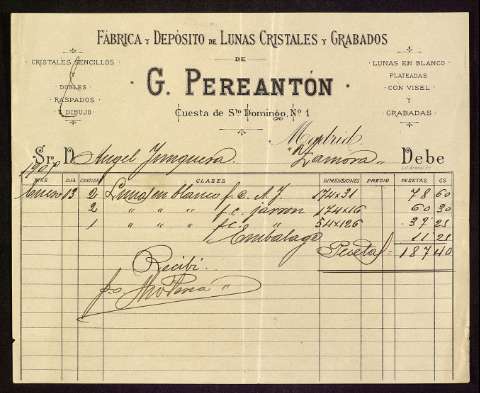 FÁBRICA Y DEPÓSITO DE LUNAS CRISTALES Y GRABADOS
DE
G. PEREANTÓN
Cuesta de Sto Domingo, No 1
CRISTALES SENCILLOS
Y
DOBLES
RASPADOS
Y DIBUJO
LUNAS EN BLANCO
PLATEADAS
CON VISEL
Y
GRABADAS
Madrid
Sr. D. Angel Junquera Zamora Debe
1907
MES DIA CLASES DIMENSIONES PRECIO PESETAS CS
Enero 13 2 Lunas en blanco f. c. A. J. 174x31 78 60
2 " " " f. c. 174x16 60 30
1 " " " 54x126 37 25
Embalage 11 25
Pesetas 187 40
Recibí